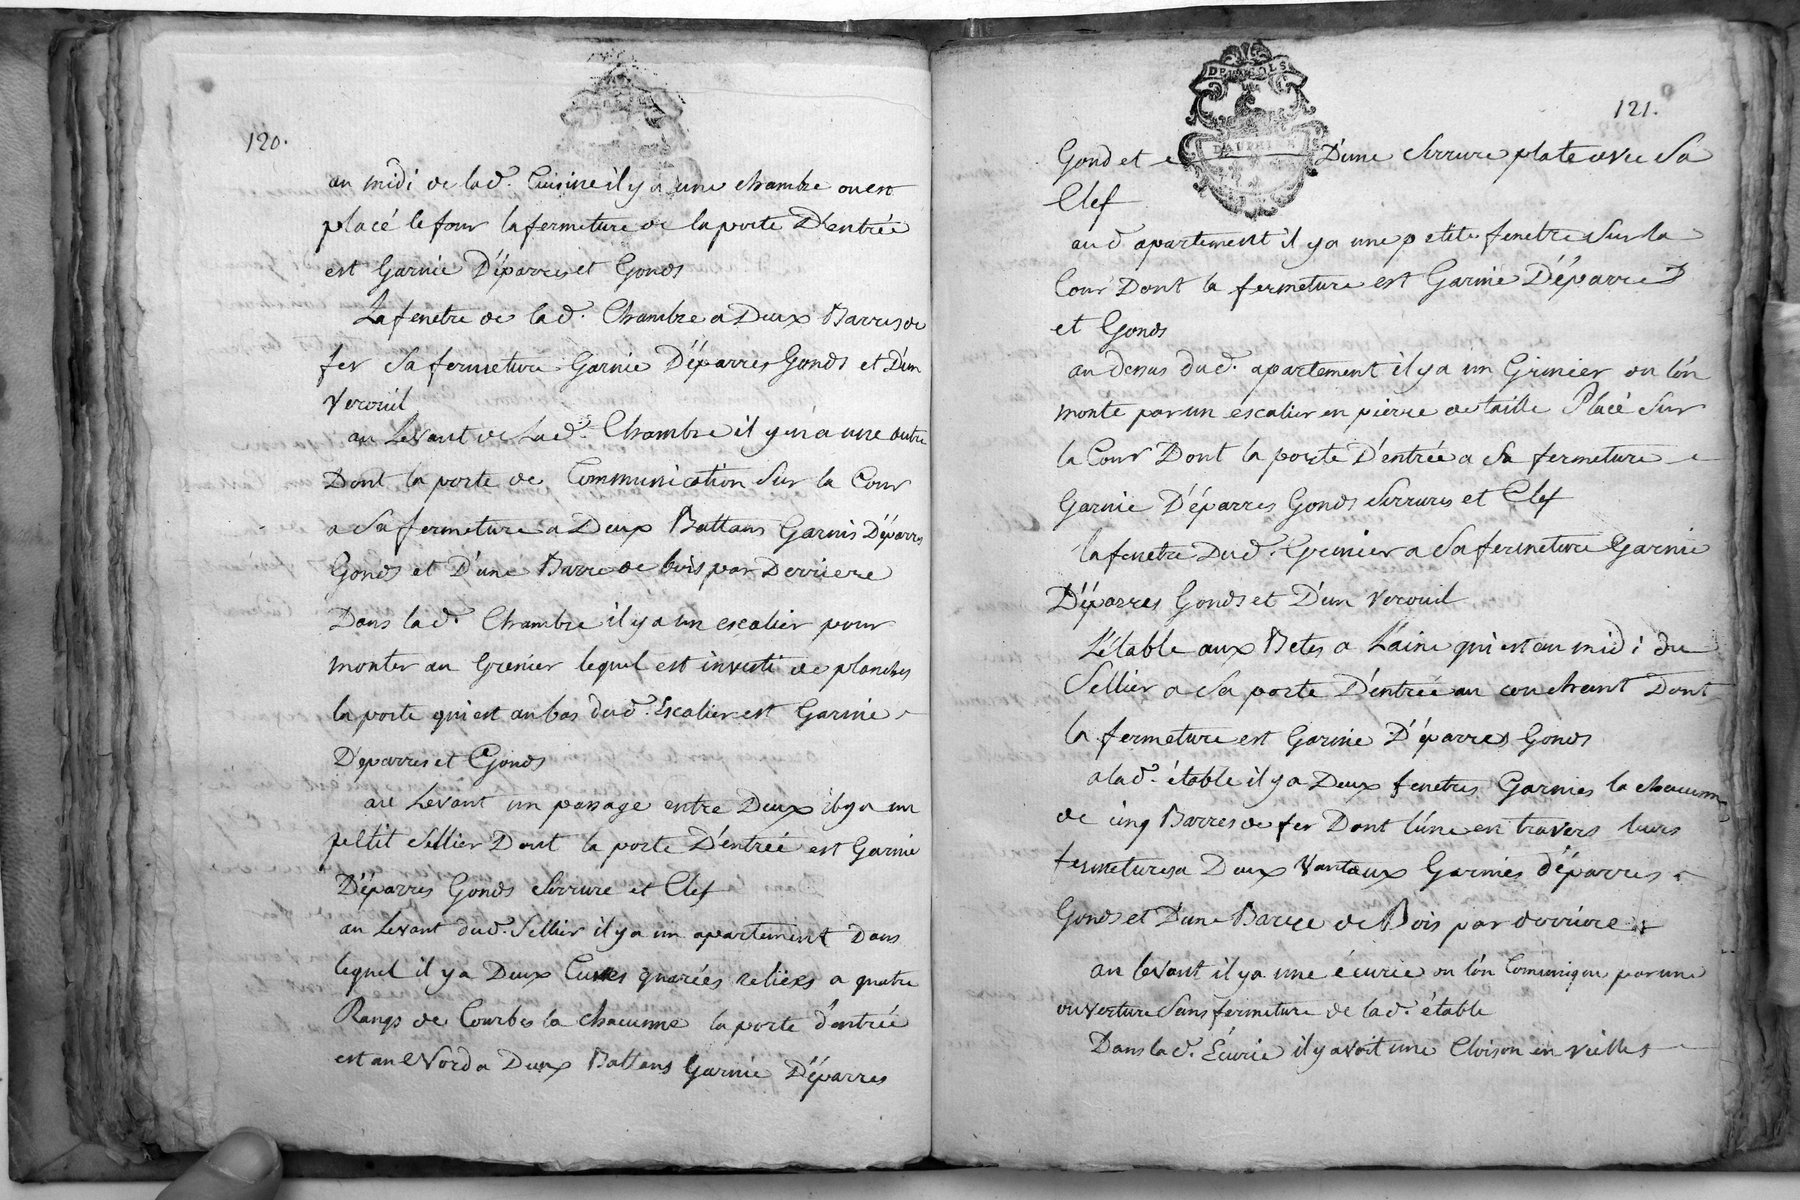 120.
au midi de lad. Cuisine il y a une chambre ou est
placé le four la fermeture de la porte D'entrée
est Garnie D'éparres et Gonds
La fenetre de lad. Chambre a Deux Barres de
fer Sa fermeture Garnie D'éparres Gonds et D'un
Verouil
au Levant de Lad. Chambre il y en a une autre
Dont la porte de Communication Sur la Cour
a Sa fermeture a Deux Battans Garnis D'éparres
Gonds et D'une Barre de bois par Derriere
Dans lad. Chambre il y a un escalier pour
monter au Grenier lequel est investi de planches
la porte qui est au bas dud. Escalier est Garnie
D'eparres et Gonds
au Levant un passage entre Deux il y a un
pettit Sellier Dont la porte D'entrée est Garnie
D'éparres Gonds Serrure et Clef
au Levant dud. Sellier il y a un apartement Dans
lequel il y a Deux Cuves quarées reliées a quatre
Rangs de Courbes la chacunne la porte d'entrée
est au Nord a Deux Battans Garnie D'éparres
DEUX SOLS
DAUPHINÉ
121.
Gond et D'une Serrure plate avec Sa
Clef
aud. apartement il y a une petite fenetre Sur la
Cour Dont la fermeture est Garnie D'éparres
et Gonds
au desus dud. apartement il y a un Grenier ou l'on
monte par un escalier en pierre de taille Placé Sur
la Cour Dont la porte D'entrée a Sa fermeture
Garnie D'éparres Gonds Serrures et Clef
la fenetre Dud. Grenier a Sa fermeture Garnie
D'éparres Gonds et D'un Verouil
L'étable aux Betes a Laine qui est au midi du
Sellier a Sa porte D'entrée au couchant Dont
la fermeture est Garnie D'éparres Gonds
a lad. étable il y a Deux fenetres Garnies la chacunne
de cinq Barres de fer Dont l'une en travers leurs
fermetures a Deux Vantaux Garnies d'éparres
Gonds et D'une Barre de Bois par derriere
au levant il y a une écurie ou l'on Comunique par une
ouverture Sans fermeture de lad. étable
Dans lad. Écurie il y avoit une Cloison en vielles